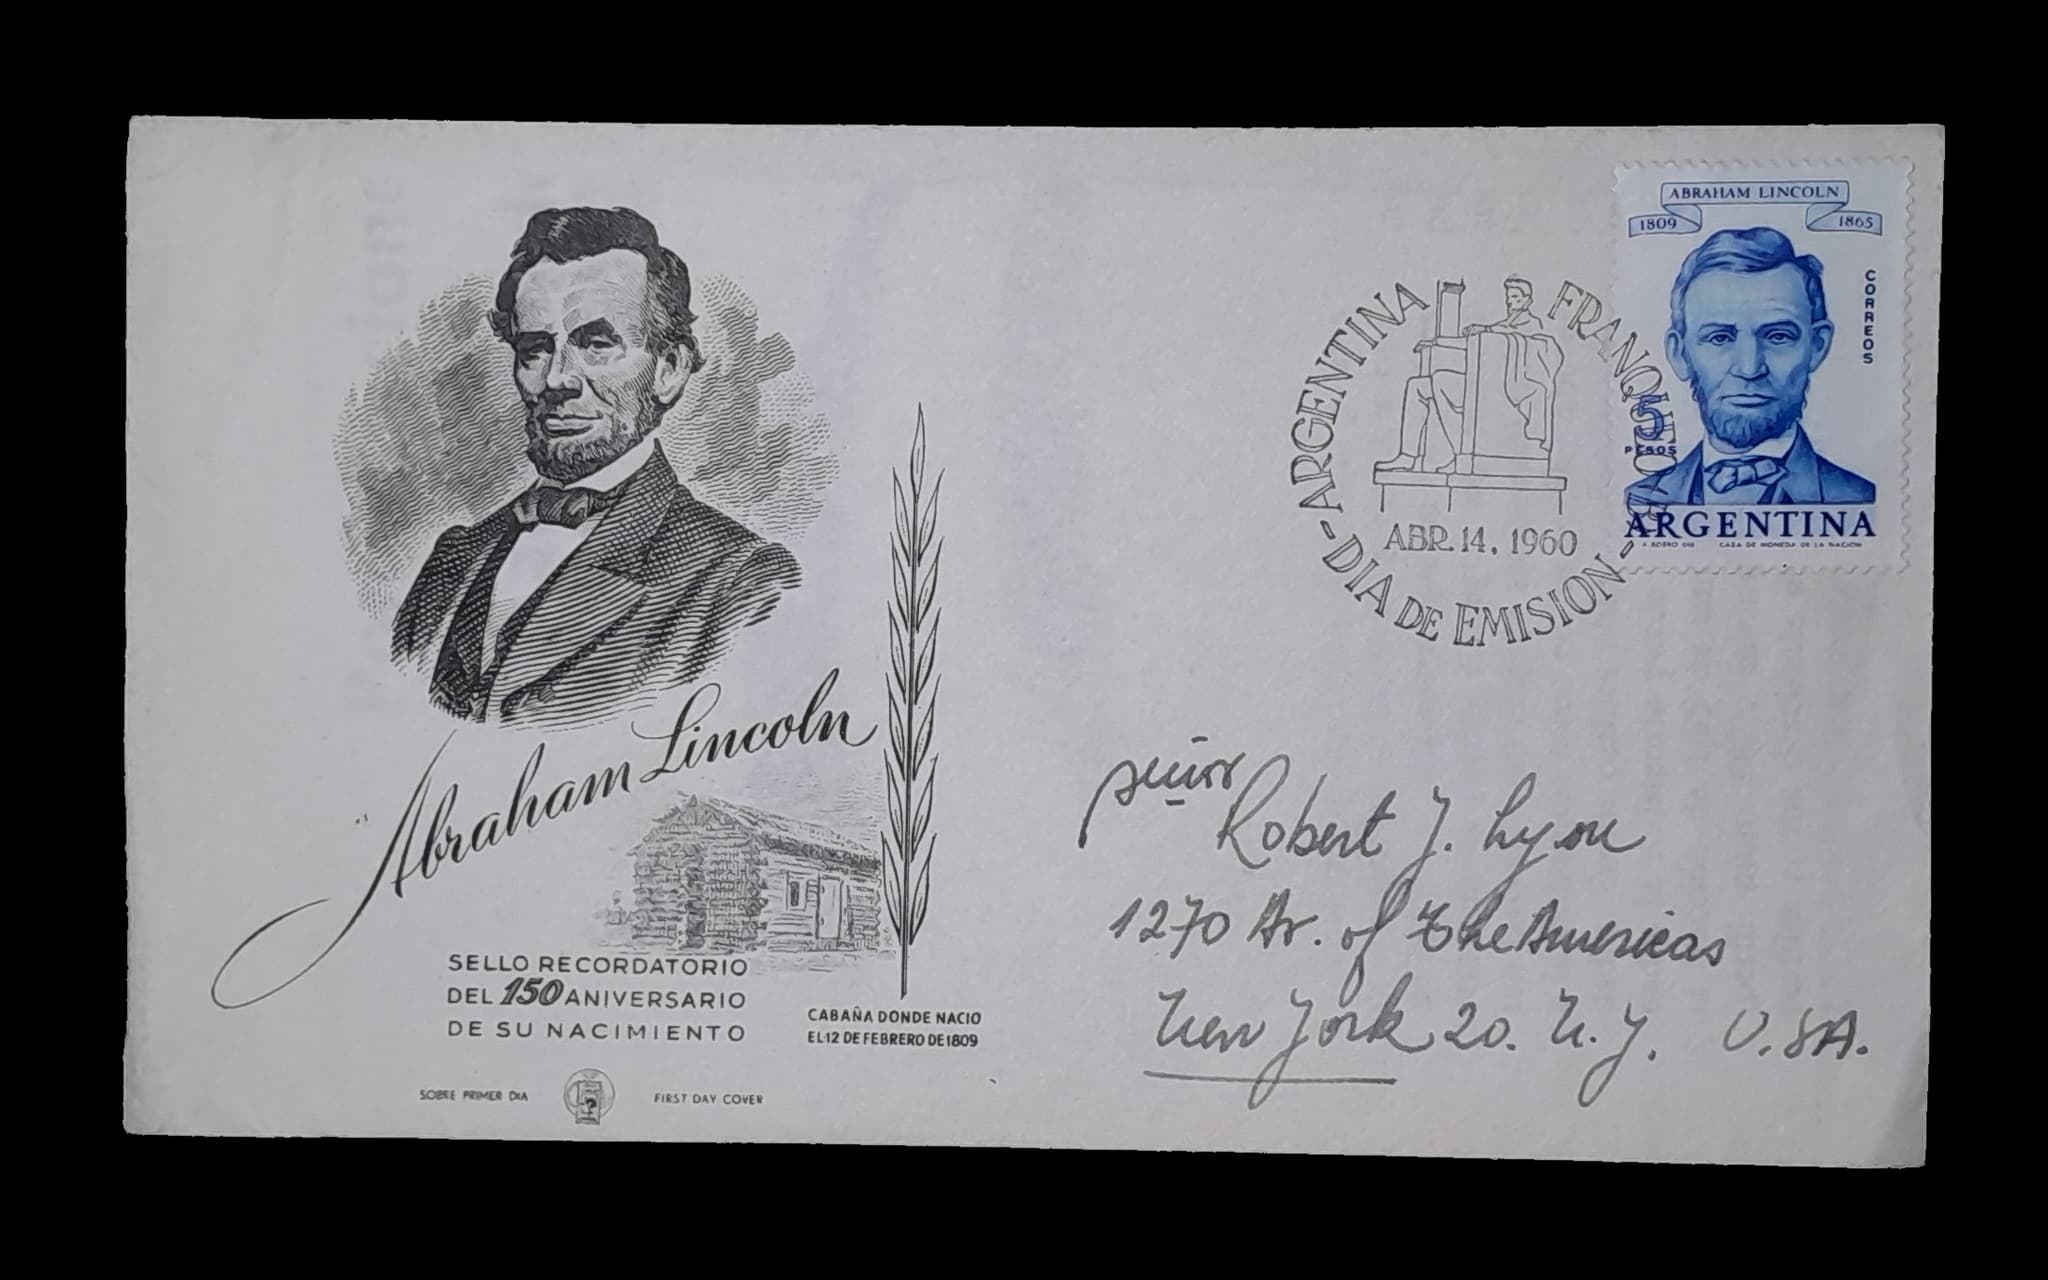 ABRAHAM LINCOLN
1809 1865
CORREOS
5
PESOS
ARGENTINA
A. BOERO DIB CASA DE MONEDA DE LA NACION
ARGENTINA
FRANQUEO
ABR. 14, 1960
- DIA DE EMISION -
Abraham Lincoln
SELLO RECORDATORIO
DEL 150 ANIVERSARIO
DE SU NACIMIENTO
CABAÑA DONDE NACIO
EL 12 DE FEBRERO DE 1809
SOBRE PRIMER DIA FIRST DAY COVER
Señor
Robert J. Lyon
1270 Av. of The Americas
New York 20. N.Y. U.SA.